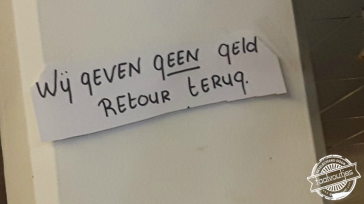 Wij geven geen geld
Retour terug.
taalvoutjes